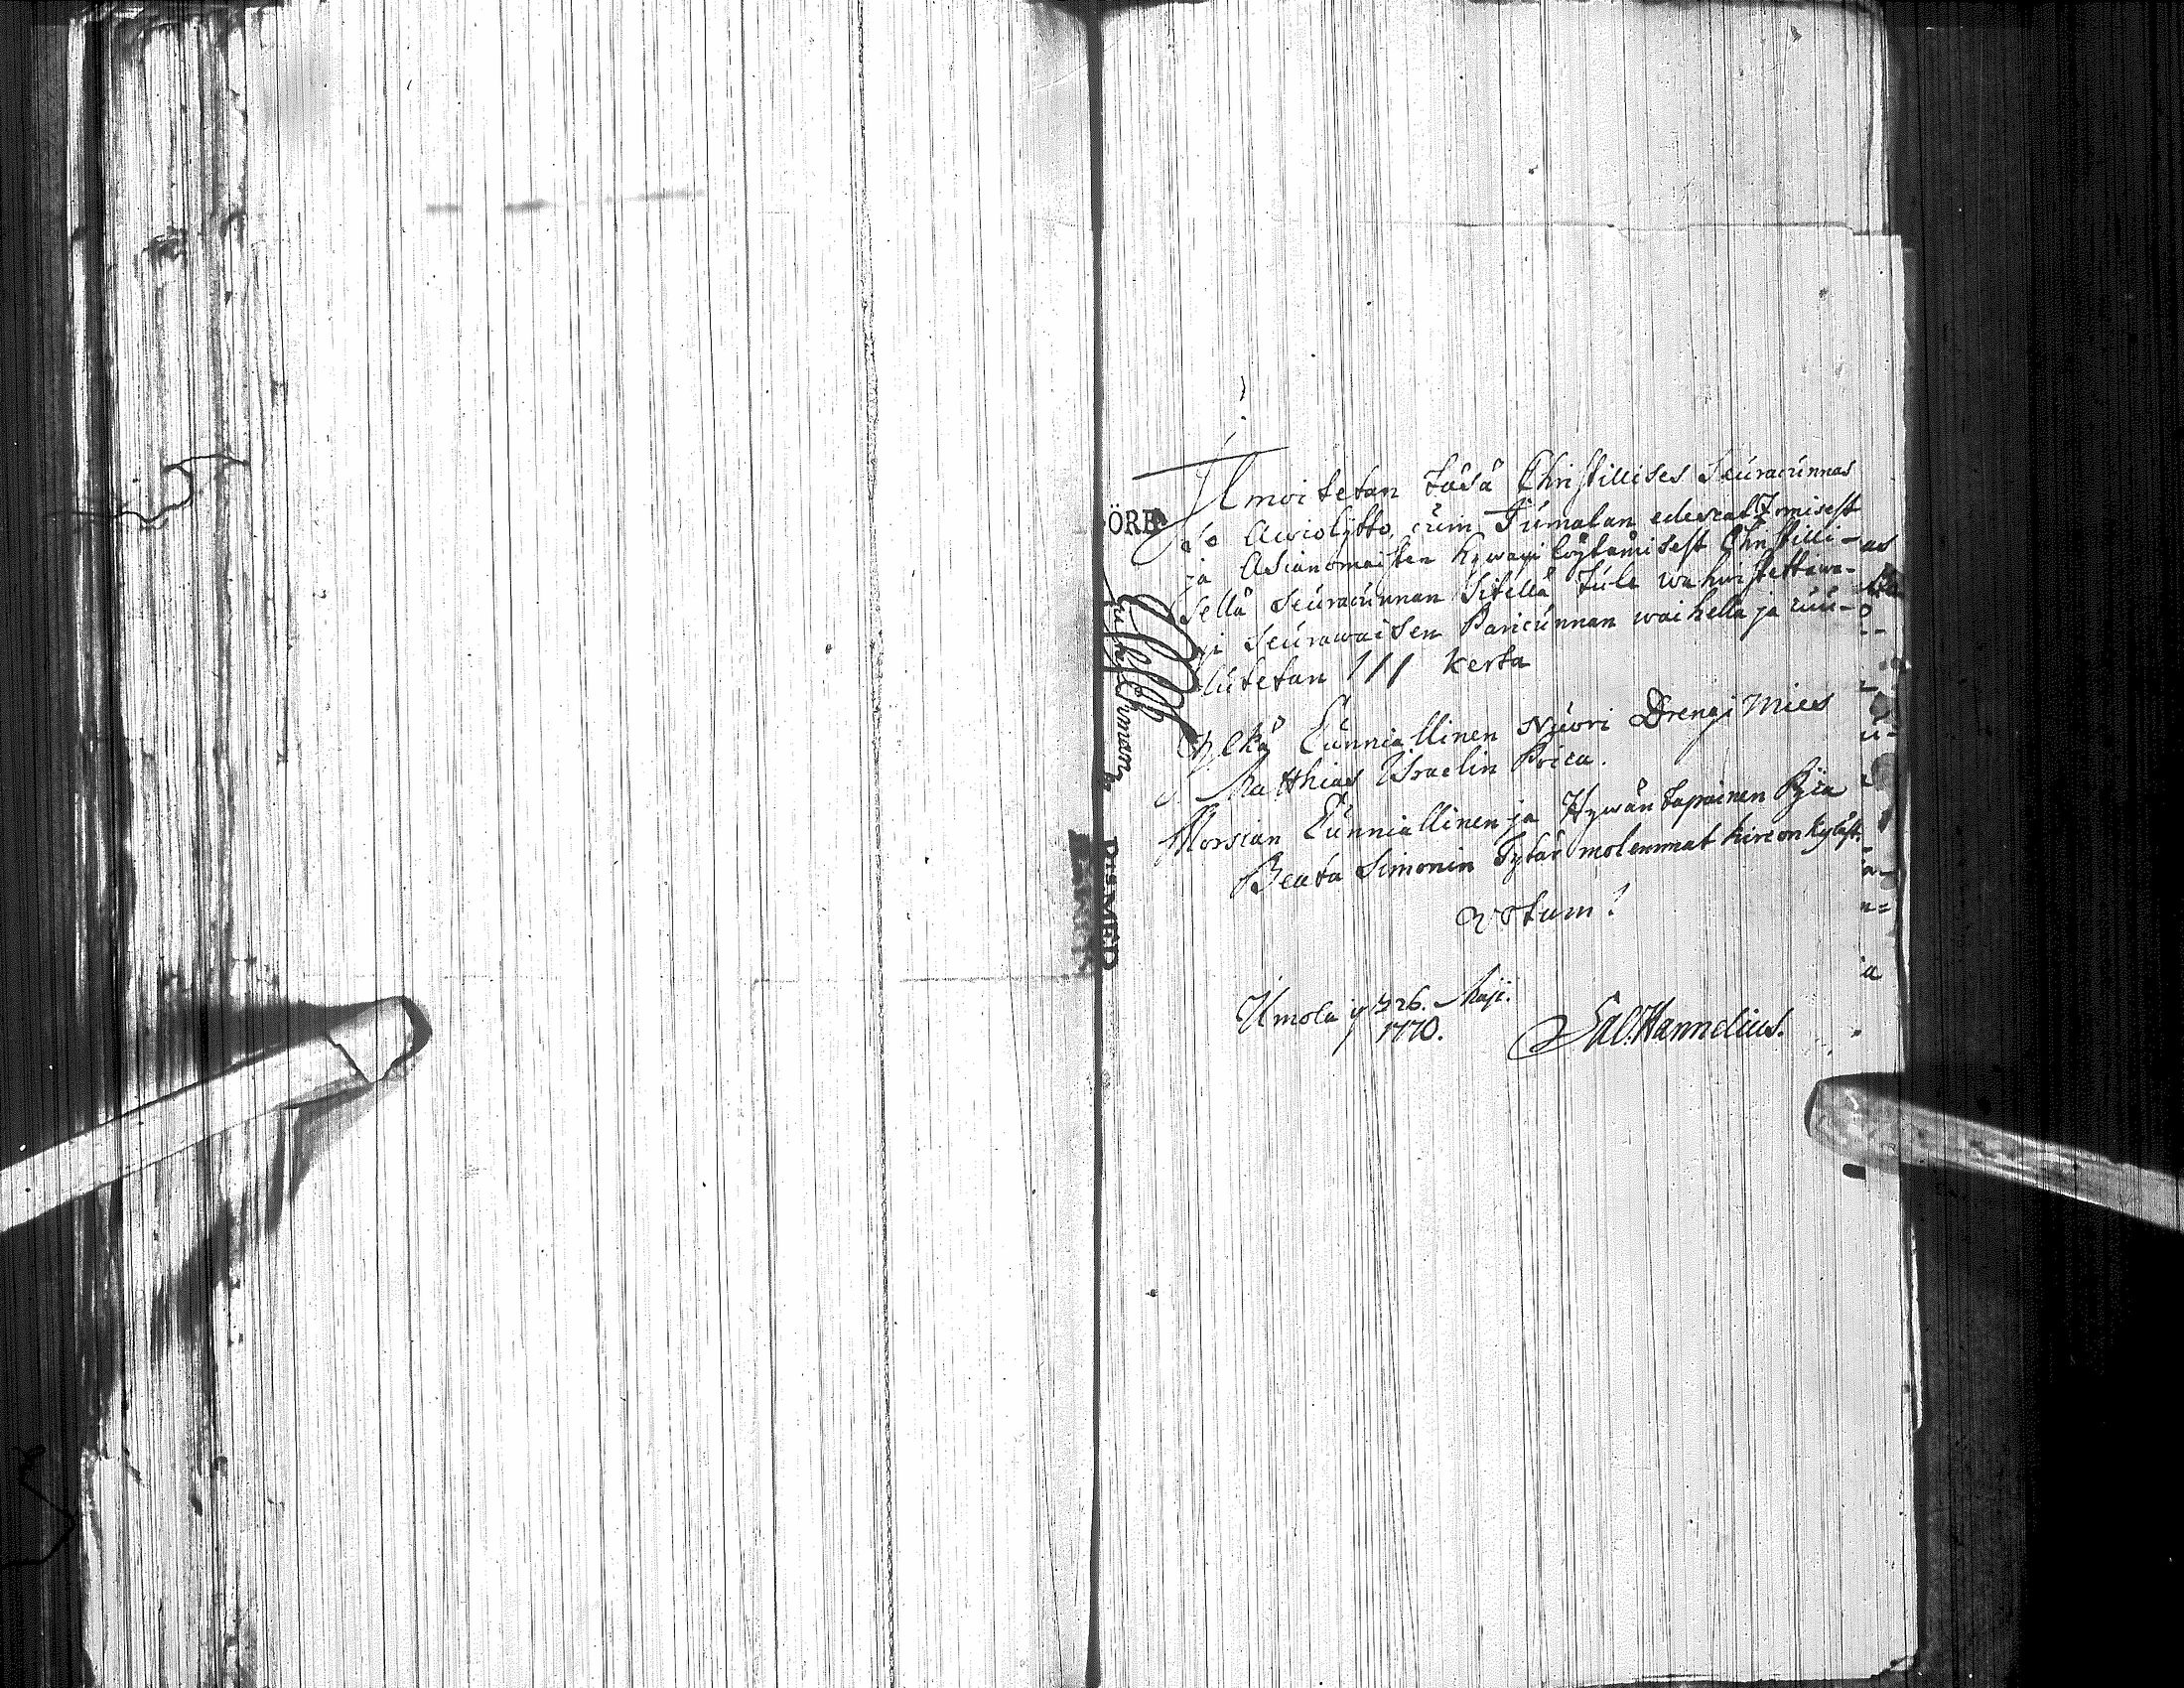 Ilmoitetan täsä Christillises Seuracunnas
se Awiolijtto, cuin Jumalan edescatzomisest
ja Asianomaisten hywäxi löytämisest Christilli-
sellä seuracunnan Sitellä tule wahwistettawa-
xi seurawaisen Paricunnan waihella ja cuu-
lutetan 111 kerta
Ylkä Cunniallinen Nuori Drengi Mies
Matthias Israelin Poica.
Morsian Cunniallinen ja Hywän tapainen Pijca
Beata Simonin Tytär molemmat kircon kyläst.
Votum!
Umola 26. Maji.
1770.
Sal. Hannelius.
ÖRE
DISMED
as
ja